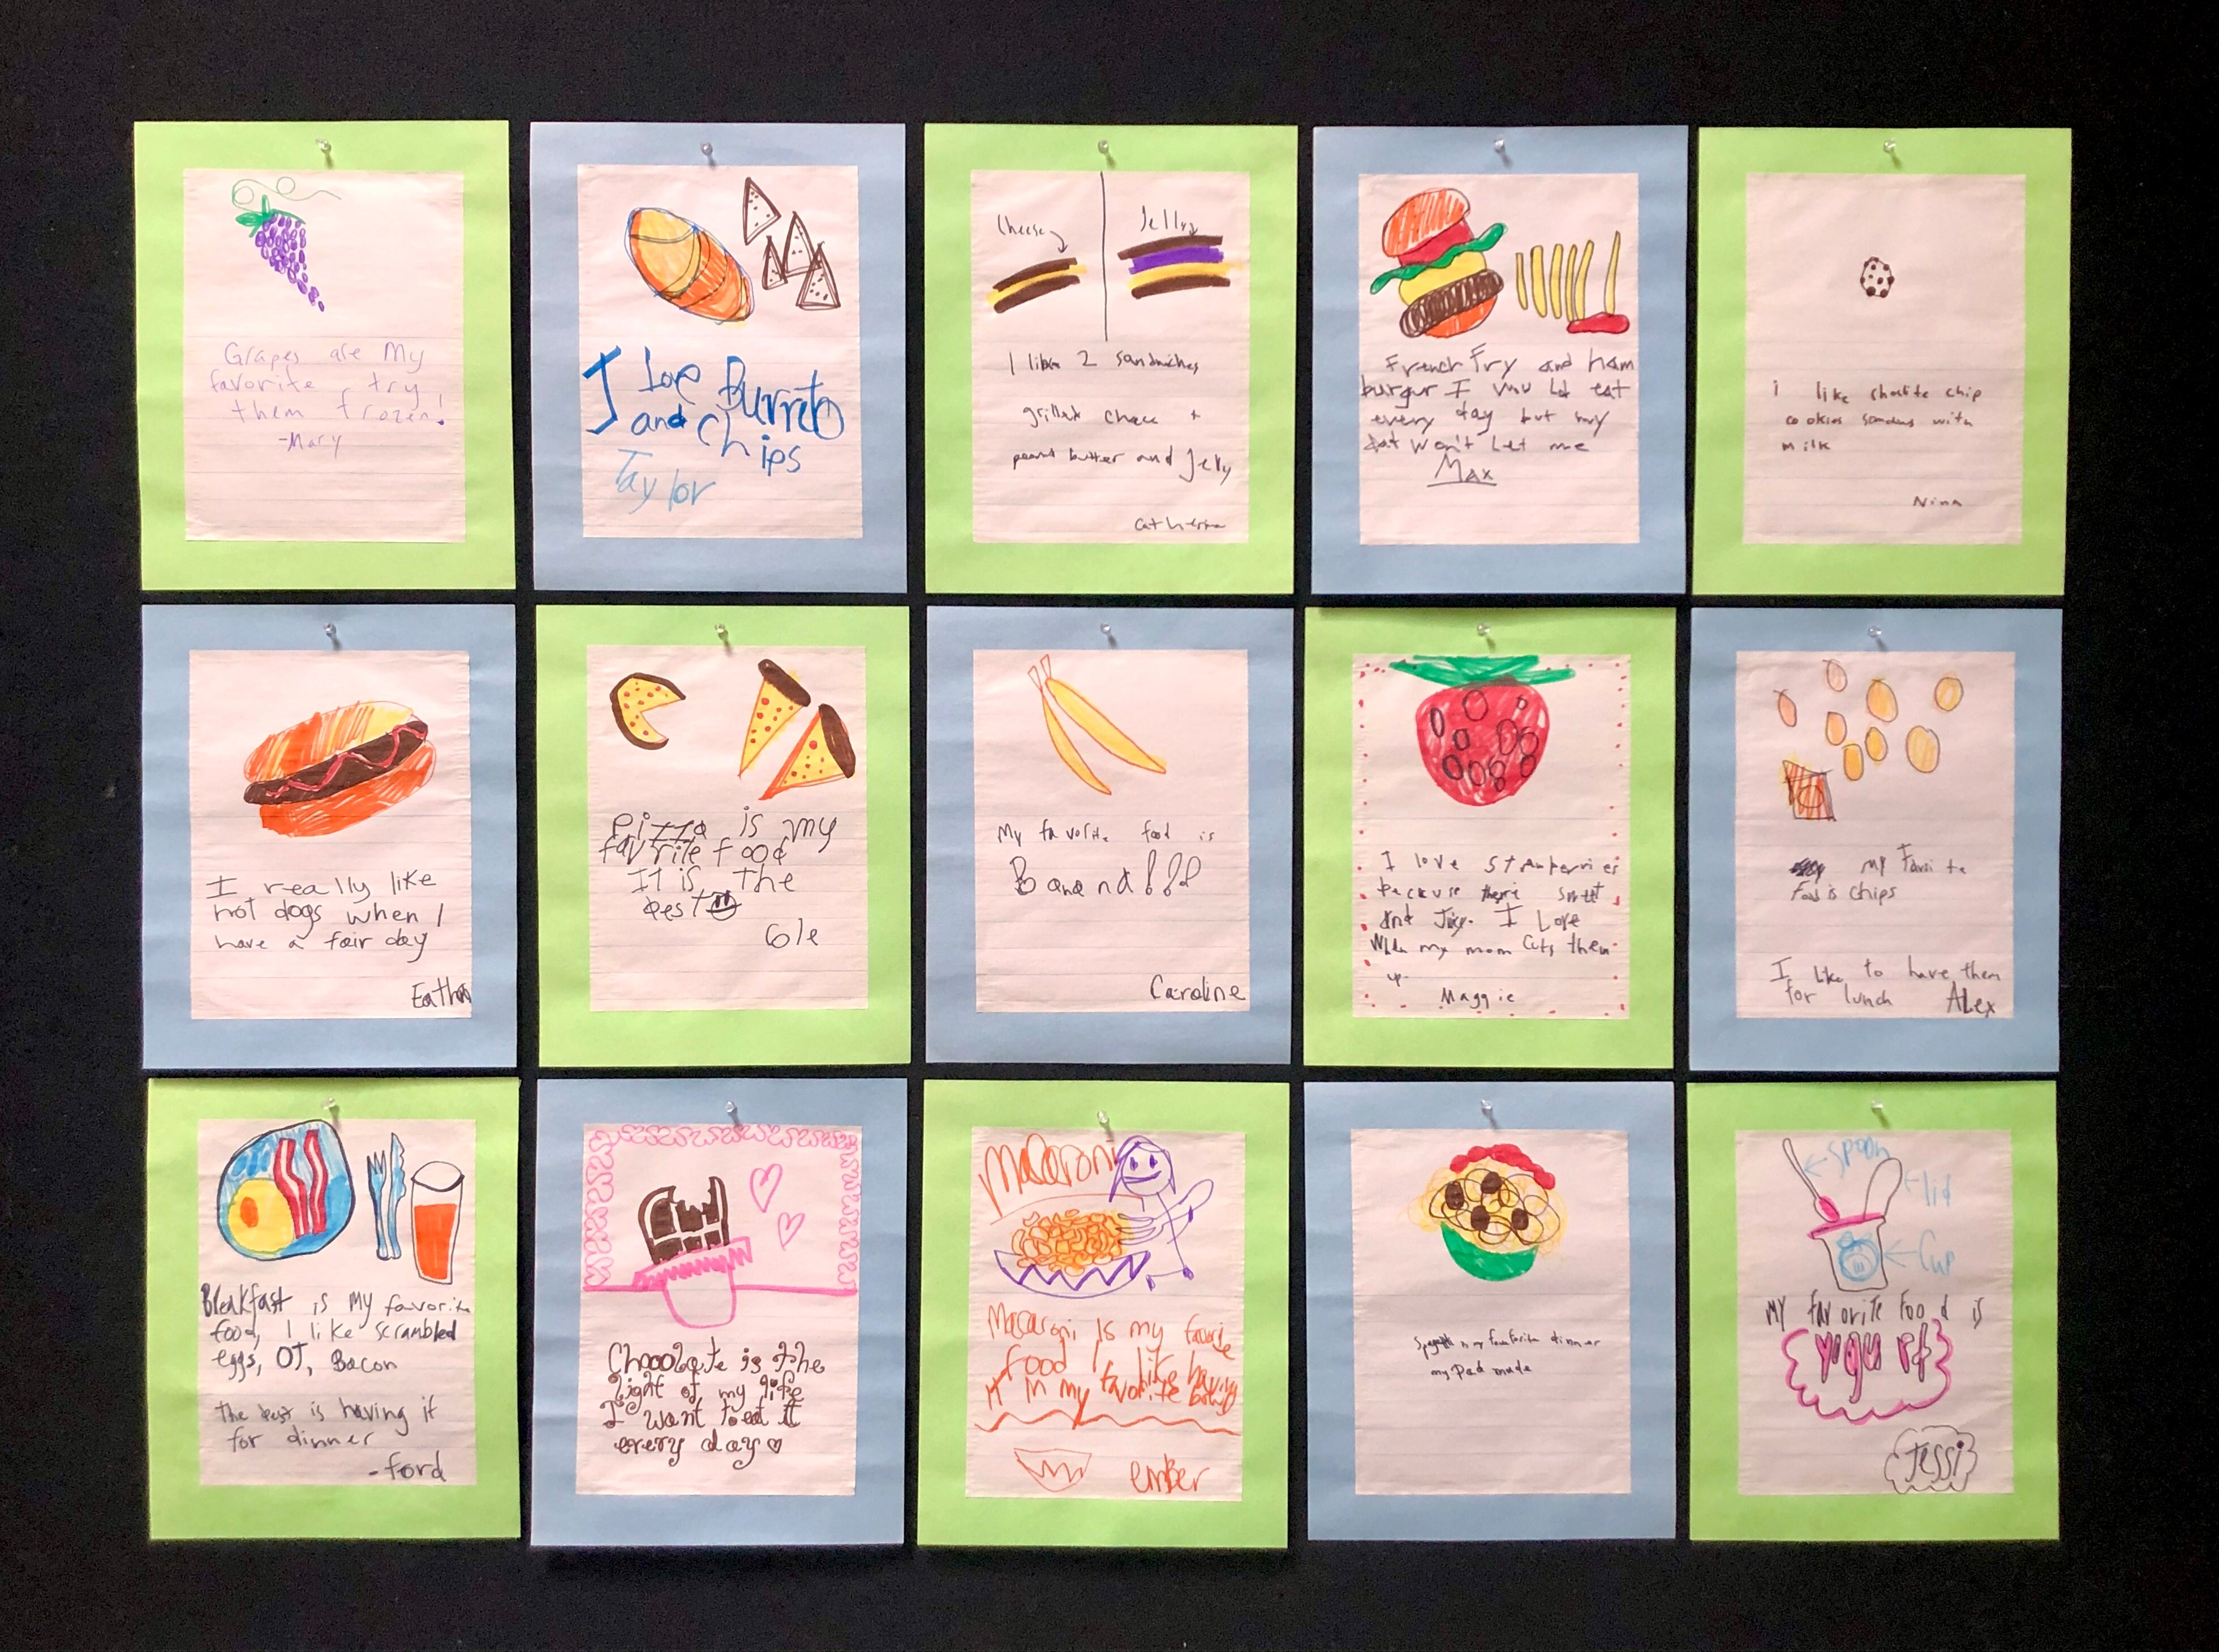 Grapes are My
favorite try
them frozen!
-Mary
I Love Burrito
and chips
Taylor
Cheese
Jelly
I like 2 sandwiches
grilled cheece +
peanut butter and Jelly
Catherine
French Fry and ham
burgur I
every day but my
won't Let me
Max
i like chip
cookies with
milk
Nina
I really like
hot dogs when I
have a fair day
Eathan
Pizza is my
favrite food
It is the
best
Cole
My favorite food is
Banana!!!
Caroline
I love strawberries
because sweet
and Juicy. I Love
When my mom cuts them
up.
Maggie
my Favorite
Food is chips
I Like to have them
for lunch
ALex
Breakfast is My favorite
food, I like scrambled
eggs, OJ, Bacon
The best is having it
for dinner
-ford
Chocolate is the
light of my life
I want to eat it
every day
Macaroni
Macaroni is my favorite
food I like having
it in my favorite bowl
emBer
is my dinner
my made
spoon
lid
Cup
MY favorite Food is
yogurt
Jessi